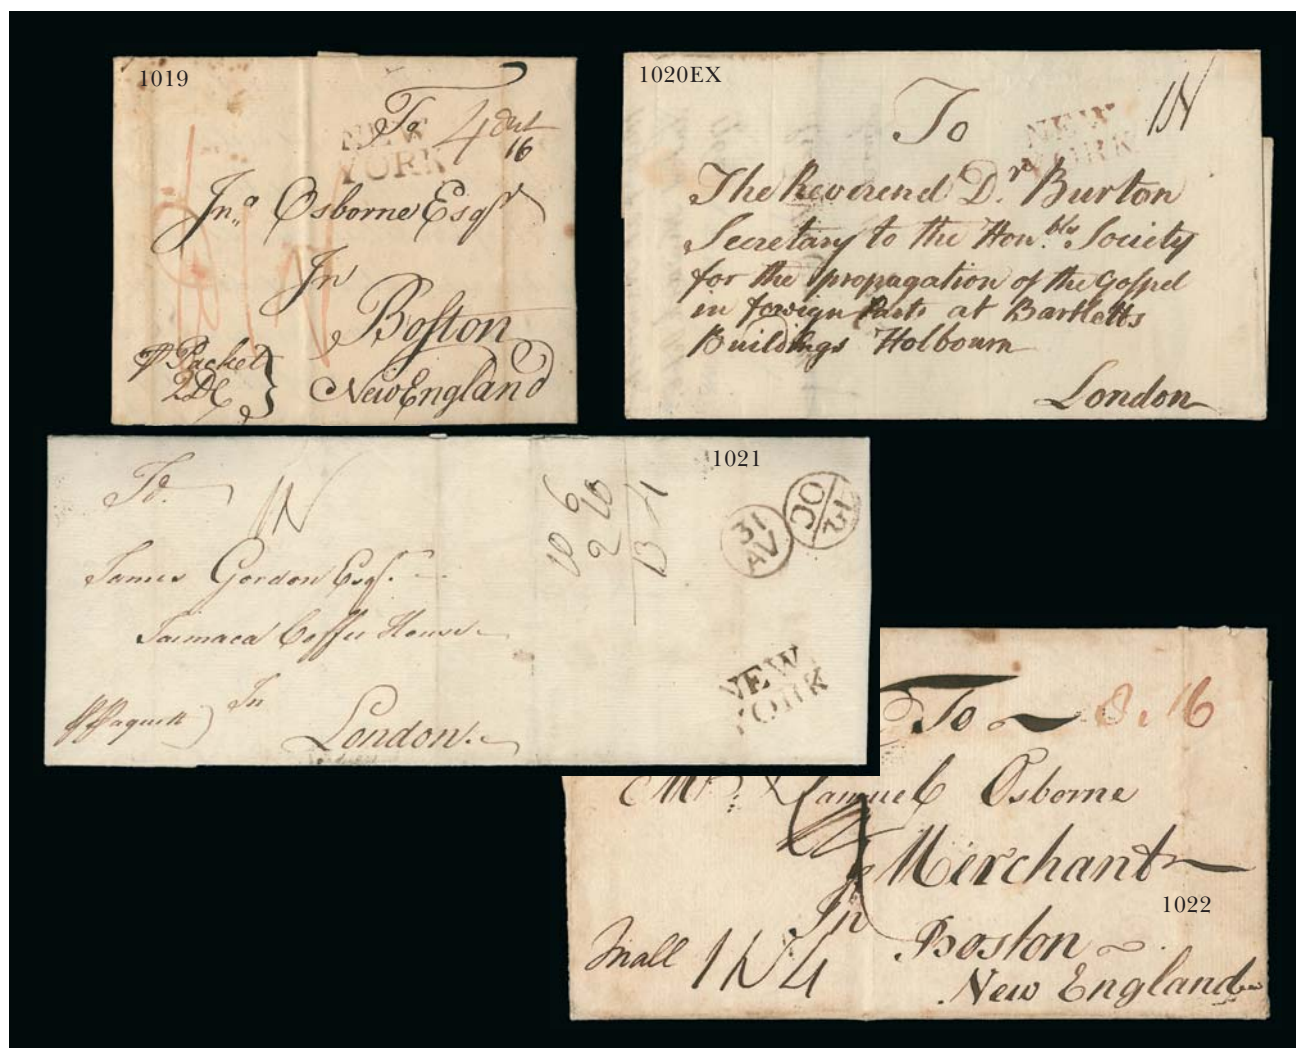 1019
To 4 dwt
16
NEW
YORK
Jn.º Osborne Esqr
In
Boston
New England
Packet
1020EX
To
1N
NEW
YORK
The Reverend Dr. Burton
Secretary to the Hon.ble Society
for the propagation of the Gospel
in foreign Parts at Bartletts
Buildings Holbourn
London
1021
To
1N
James Gordon Esqr.
Jaimaca Coffee House
In
London.
31
AV
OC
NEW
YORK
1022
To
8.16
Mr. Samuel Osborne
Merchant
In
Boston
New England
1N4